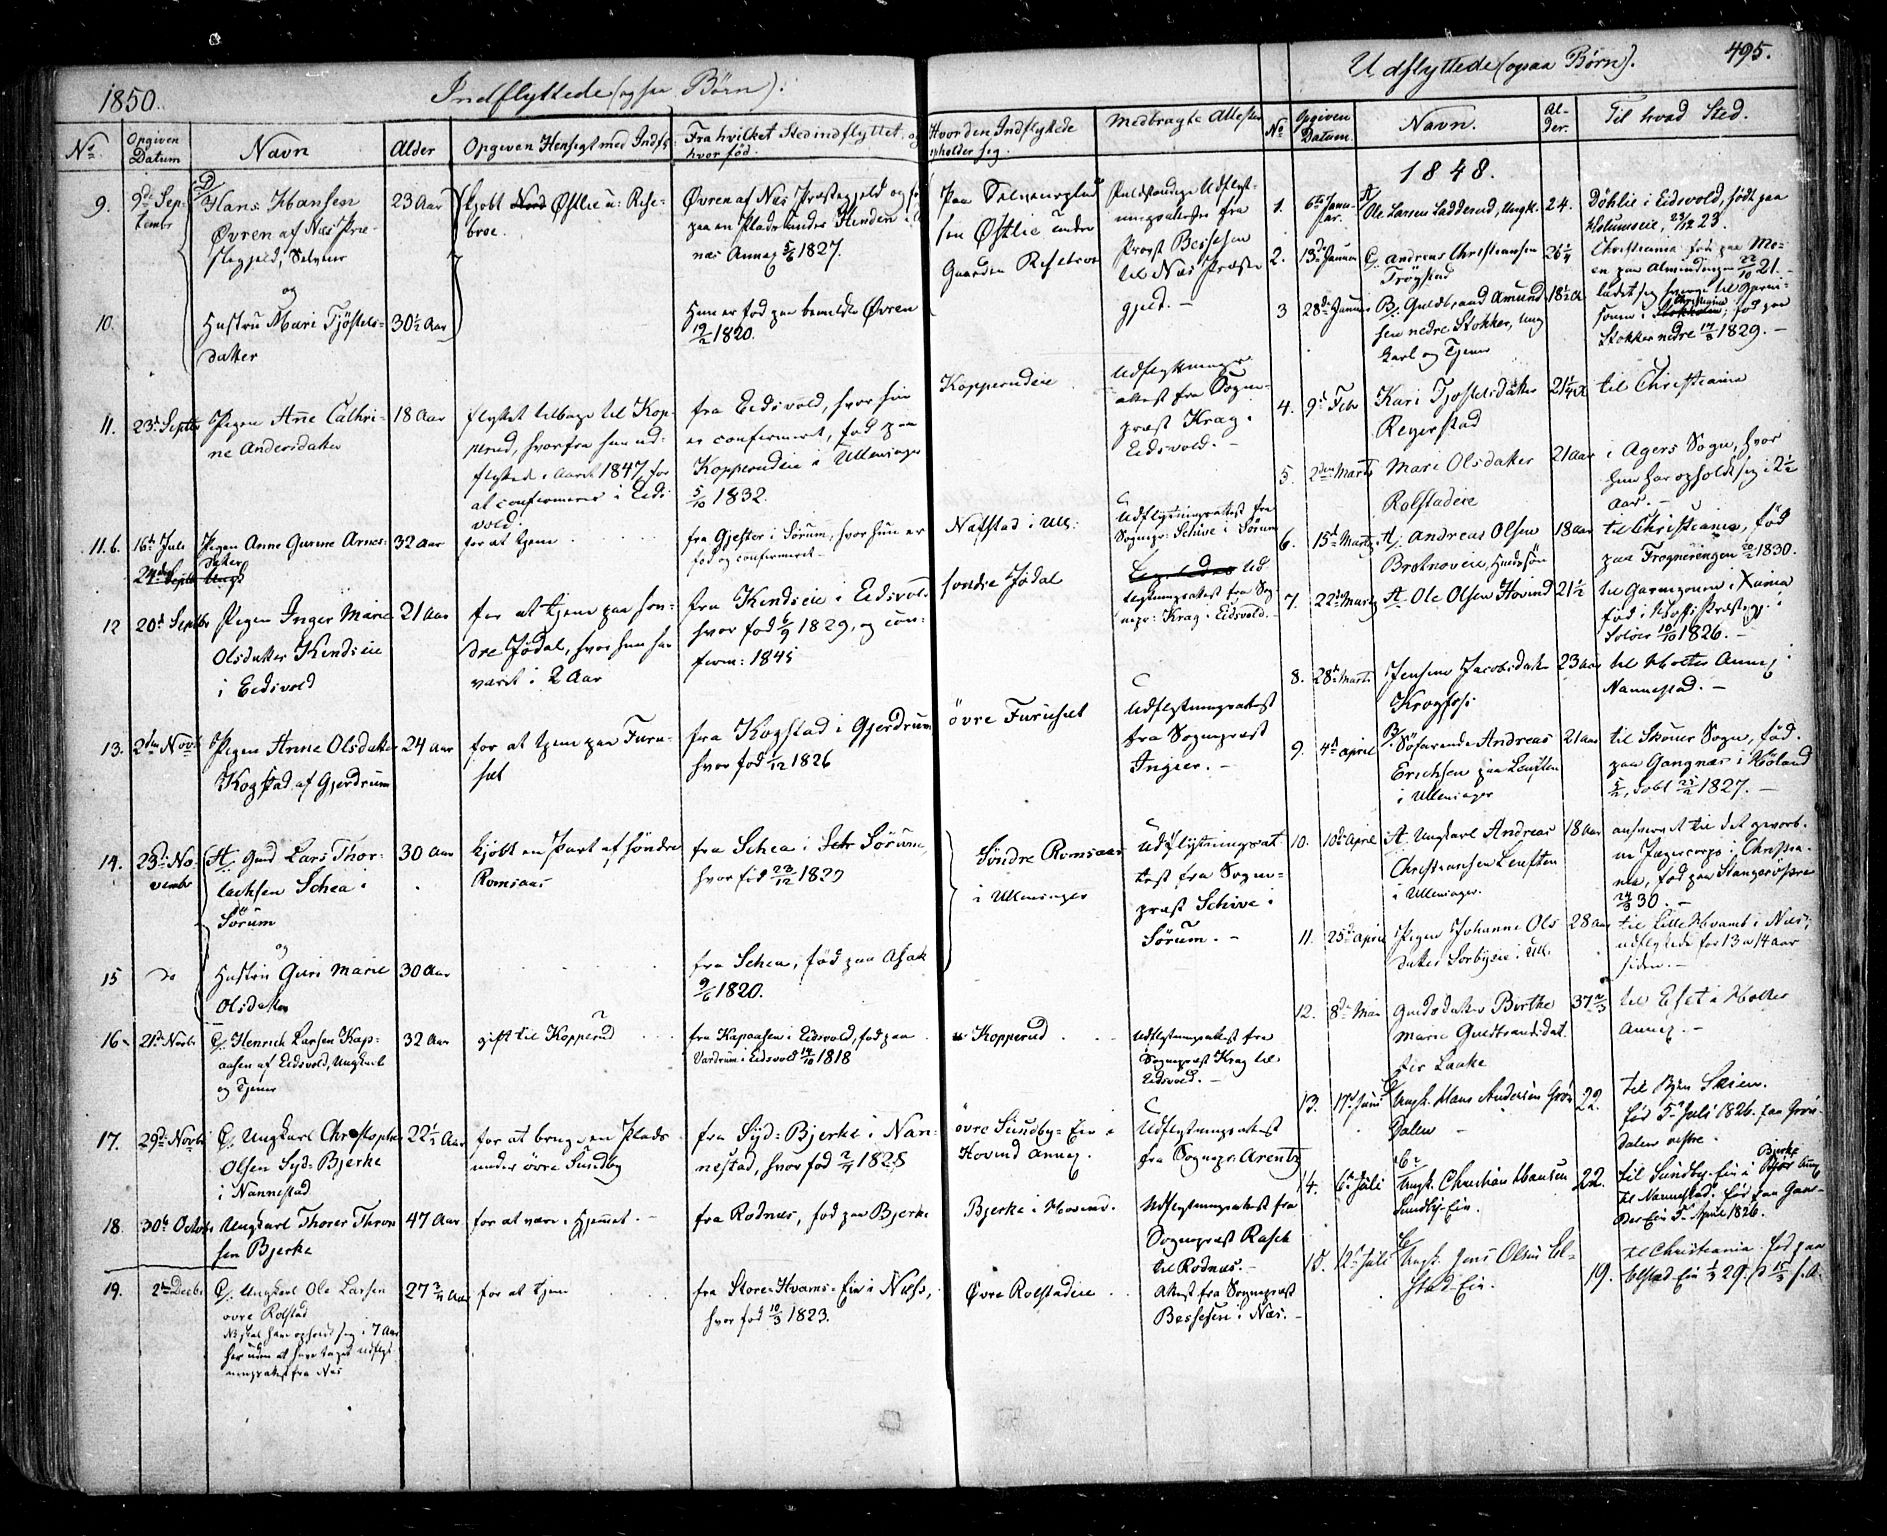 1850.
Indflyttede (ogsaa Børn).
No.
Opgiven Datum
Navn
Alder
Opgiven Hensigt med Indfl
Fra hvilket Sted indflyttet, og hvor fød.
Hvor den Indflyttede opholder sig.
Medbragte Attester
9.
9de Sep-
tembr
Hans Hansen
Øvren af Næs Præ-
stegjeld, Selveier
og
23 Aar
kjøbt Øстlie u: Rise-
broe.
Øvren af Næs Præstegjeld og fød
paa en Plads under Henden i
næs Annex 5/6 1827.
Paa Selveierplad
sen Østlie under
Gaarden Risebroe
Udflyt-
ningsattester fra
Provst Bessesen
til Næs Præste
gjeld. –
10.
Hustru Mari Tjøstels-
datter
30½ Aar
Hun er fød paa bemeldte Øvren
19/2 1820.
11.
23d Septbr
Pigen Anne Cathri-
ne Andersdatter
18 Aar
flyttet tilbage til Kop-
perud, hvorfra hun ud-
flyttede i Aaret 1847, for
at confirmeres i Eids-
vold.
fra Eidsvold, hvor hun
er confirmeret, fød paa
Kopperudeie i Ullensager
5/10 1832.
Kopperudeie
Udflytnings-
attest fra Sogne-
præst Krag i
Eidsvold. –
11.b.
16de Juli
Pigen Anne Gurine Arnes-
datter
32 Aar
for at tjene
fra Gjestor i Sørum, hvor hun er
fød og confirmeret –
Natstad i Ull:
Udflytningsattest fra
Sognepr: Schive i Sørum
12
20d Septbr
Pigen Inger Marie
Olsdatter Kindseie
i Eidsvold
21 Aar
for at tjene paa Søn-
dre Jødal, hvor hun har
været i 2 Aar
fra Kindseie i Eidsvold
hvor fød 6/9 1829, og con-
firm: 1845
søndre Jødal
Ud
flytningsattest fra Sog
nepr: Krag i Eidsvold. –
13.
2den Novbr
Pigen Anne Olsdatter
Kogstad af Gjerdrum
24 Aar
for at tjene paa Furu-
set
fra Kogstad i Gjerdrum
hvor fød 1/12 1826
øvre Furuset
Udflytningsattest
fra Sognepræst
Ingier. –
14.
23d No-
vembr
A. Gmd Lars Thor-
lachsen Schea i
Sørum
og
30 Aar
kjøbt en Part af Søndre
Romsaas
fra Schea i Sørum,
hvor fød 23/12 1820
Søndre Romsaas
i Ullensager
Udflytningsat
test fra Sogne-
præst Schive i
Sørum. –
15
do
Hustru Guri Marie
Olsdatter
30 Aar
fra Schea, fød paa Asak
9/6 1820.
16
21d Novbr
C. Henrich Larsen Kap-
aasen af Eidsvold, Ungkarl
og Tjener
32 Aar
gift til Kopperud
fra Kapaasen i Eidsvold, fød paa
Vardrum i Eidsvold 14/10 1818
Kopperud
Udflytningsattest fra
Sognepræst Krag til
Eidsvold. –
17.
29d Novbr
C. Ungkarl Christopher
Olsen Syd: Bjerke
i Nannestad
22½ Aar
for at bruge en Plads
under øvre Sundby
fra Syd: Bjerke i Nan-
nestad, hvor fød 2/4 1828
øvre Sundby-Eie i
Hovind Annex.
Udflytningsattest
fra Sognepr. Arentz
18.
30te Octobr
Ungkarl Thorer Thron
sen Bjerke
47 Aar
for at være i Hjemmet. –
fra Rodnæs, fød paa Bjerke
Bjerke i Hovind.
Udflytningsattest fra
Sognepræst Rasch
til Rodnæs. –
19.
2den Decbr
C. Ungkarl Ole Larsen
øvre Rolstad
NB skal have opholdt sig i 7 Aar
her uden at have taget Udflyt
ningsattest fra Næs
27¾ Aar
for at tjene
fra Store-Hvams-Eie i Næss,
hvor fød 10/3 1823.
Øvre Rolstadeie
Attest fra Sognepræst
Bessesen i Næs. –
Udflyttede (ogsaa Børn).
495.
No
Opgiven Datum.
Navn.
Al-
der.
Til hvad Sted.
1848.
1.
6te Janu-
ar.
Ole Larsen Ladderud, Ungk.
24.
Døhlie i Eidsvold, født paa
23/12 23.
2.
13de Januar
C. Andreas Christiansen
Trøgstad
26¼
Christiania fød paa Mo-
en paa Almindingen 22/10 21. –
3
28de Januar
B. Guldbrand Amund
sen nedre Stokker, Ung
karl og Tjener
18½ A
til Garni-
sonen i Christiania, fød paa
Stokker nedre 14/8 1829. –
4.
9d Febr
Kari Tjøstelsdatter
Reyerstad
21¼ A
til Christiania
5.
2den Marts
Mari Olsdatter
Rolstadeie
21 Aar
i Agers Sogn, hvor
hun har opholdt sig i 2½
Aar. –
6.
15d Marts
A. Andreas Olsen
Brotnoveie, Huusmsøn
18 Aar
til Christiania, fød
paa Frognerengen 20/2 1830.
7.
22d Marts
A. Ole Olsen Hovind
21½
til Garnisonen i Xiania
fød i Hofs Præstegj. i
Soløer 10/10 1826. –
8.
28d Marts
Jensine Jacobsdatter
Krogfoss
23 Aar
til Holter Annex i
Nannestad. –
9.
4d April
B. Søfarende Andreas
Erichsen paa Leusten
i Ullensager
21 Aar
til Skouer Sogn, fød
paa Gangnæs i Høland
5/2, døbt 25/2 1827. –
10.
10de April
A. Ungkarl Andreas
Christiansen Leusten
i Ullensager.
18 Aar
anhvervet til det gevorb-
ne Jægercorps i Christia-
nia, fød paa Stangerøstræ
24/3 30. –
11.
25d April
Pigen Johanne Ols
datter Sorbyeie i Ull.
28 Aar
til Lille Hvamb i Næs;
udflyttede for 13 a 14 Aar
siden. –
12.
8de Mai
Gmdsdatter Berthe
Marie Guldbrandsdat
ter Laake
37⅔
til Elset i Holter
Annex. –
13.
17d Juni
Ungk. Hans Andersen Grøn
dalen –
22.
til Byen Skien.
fød 5te Juli 1826. paa Grøn-
dalen vestre.
14.
6te Juli
Ungk. Christian Hansen
Sundby-Eie.
22.
til Sundby-Eie i Bjerke Annex
til Nannestad. fød paa Gaar-
der Eie 5te April 1826.
15.
12te Juli
Ungk. Jens Olsen El-
stad-Eie.
19.
til Christiania. fød paa
Elstad Eie 1/3 29. d 15/3 s. A.